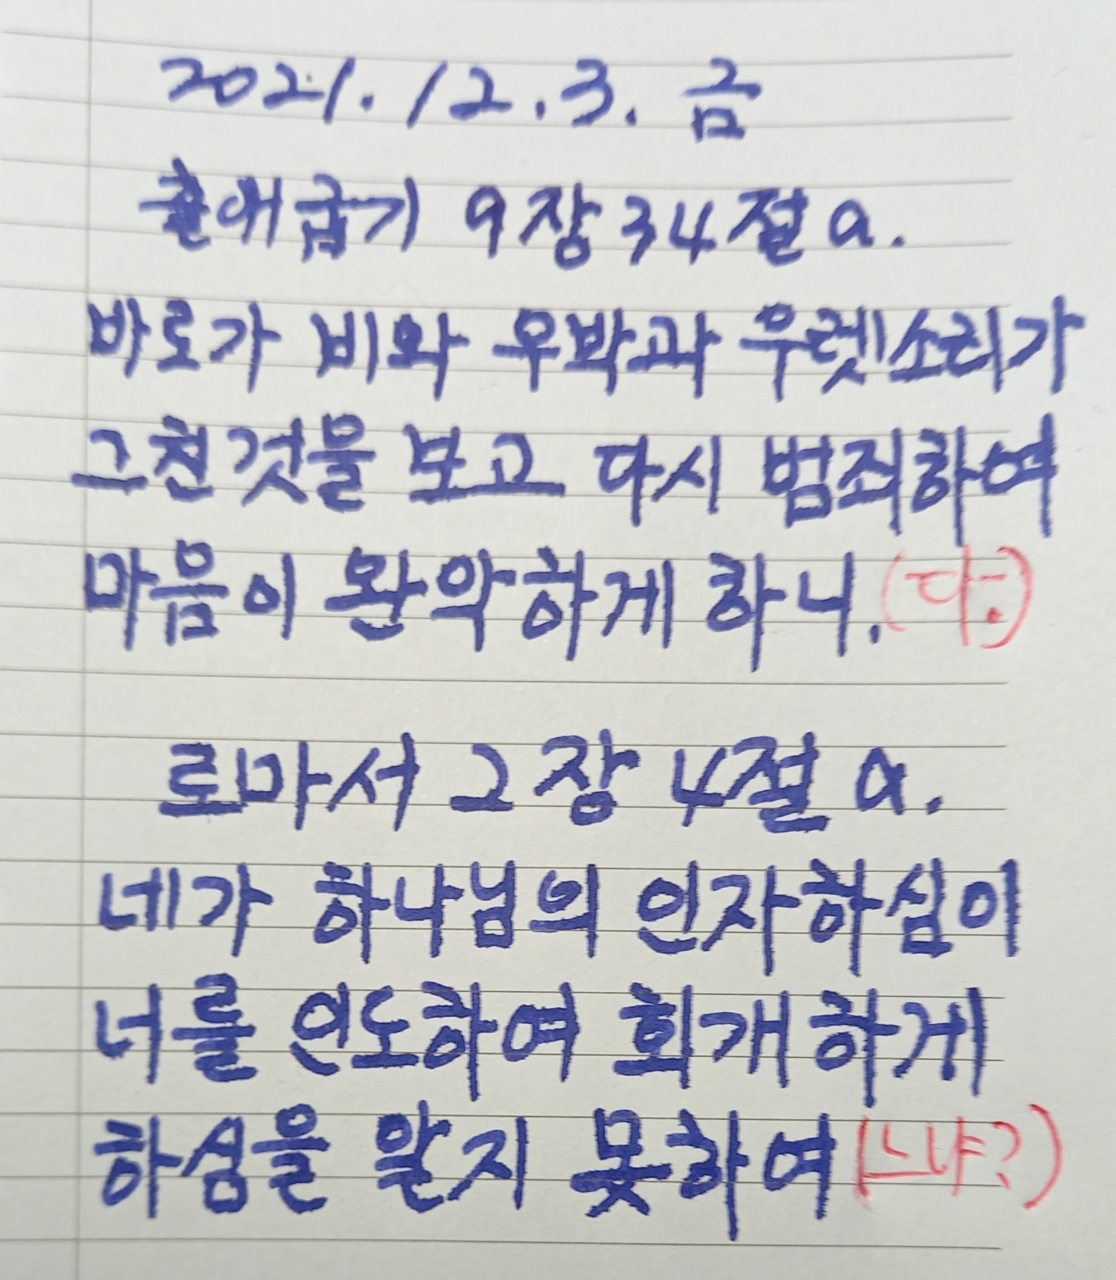 2021. 12. 3. 금
출애굽기 9장 34절 a.
바로가 비와 우박과 우렛소리가
그친것을 보고 다시 범죄하여
마음이 완악하게 하니. (다.)
로마서 2장 4절 a.
네가 하나님의 인자하심이
너를 인도하여 회개하게
하심을 알지 못하여 (느냐?)